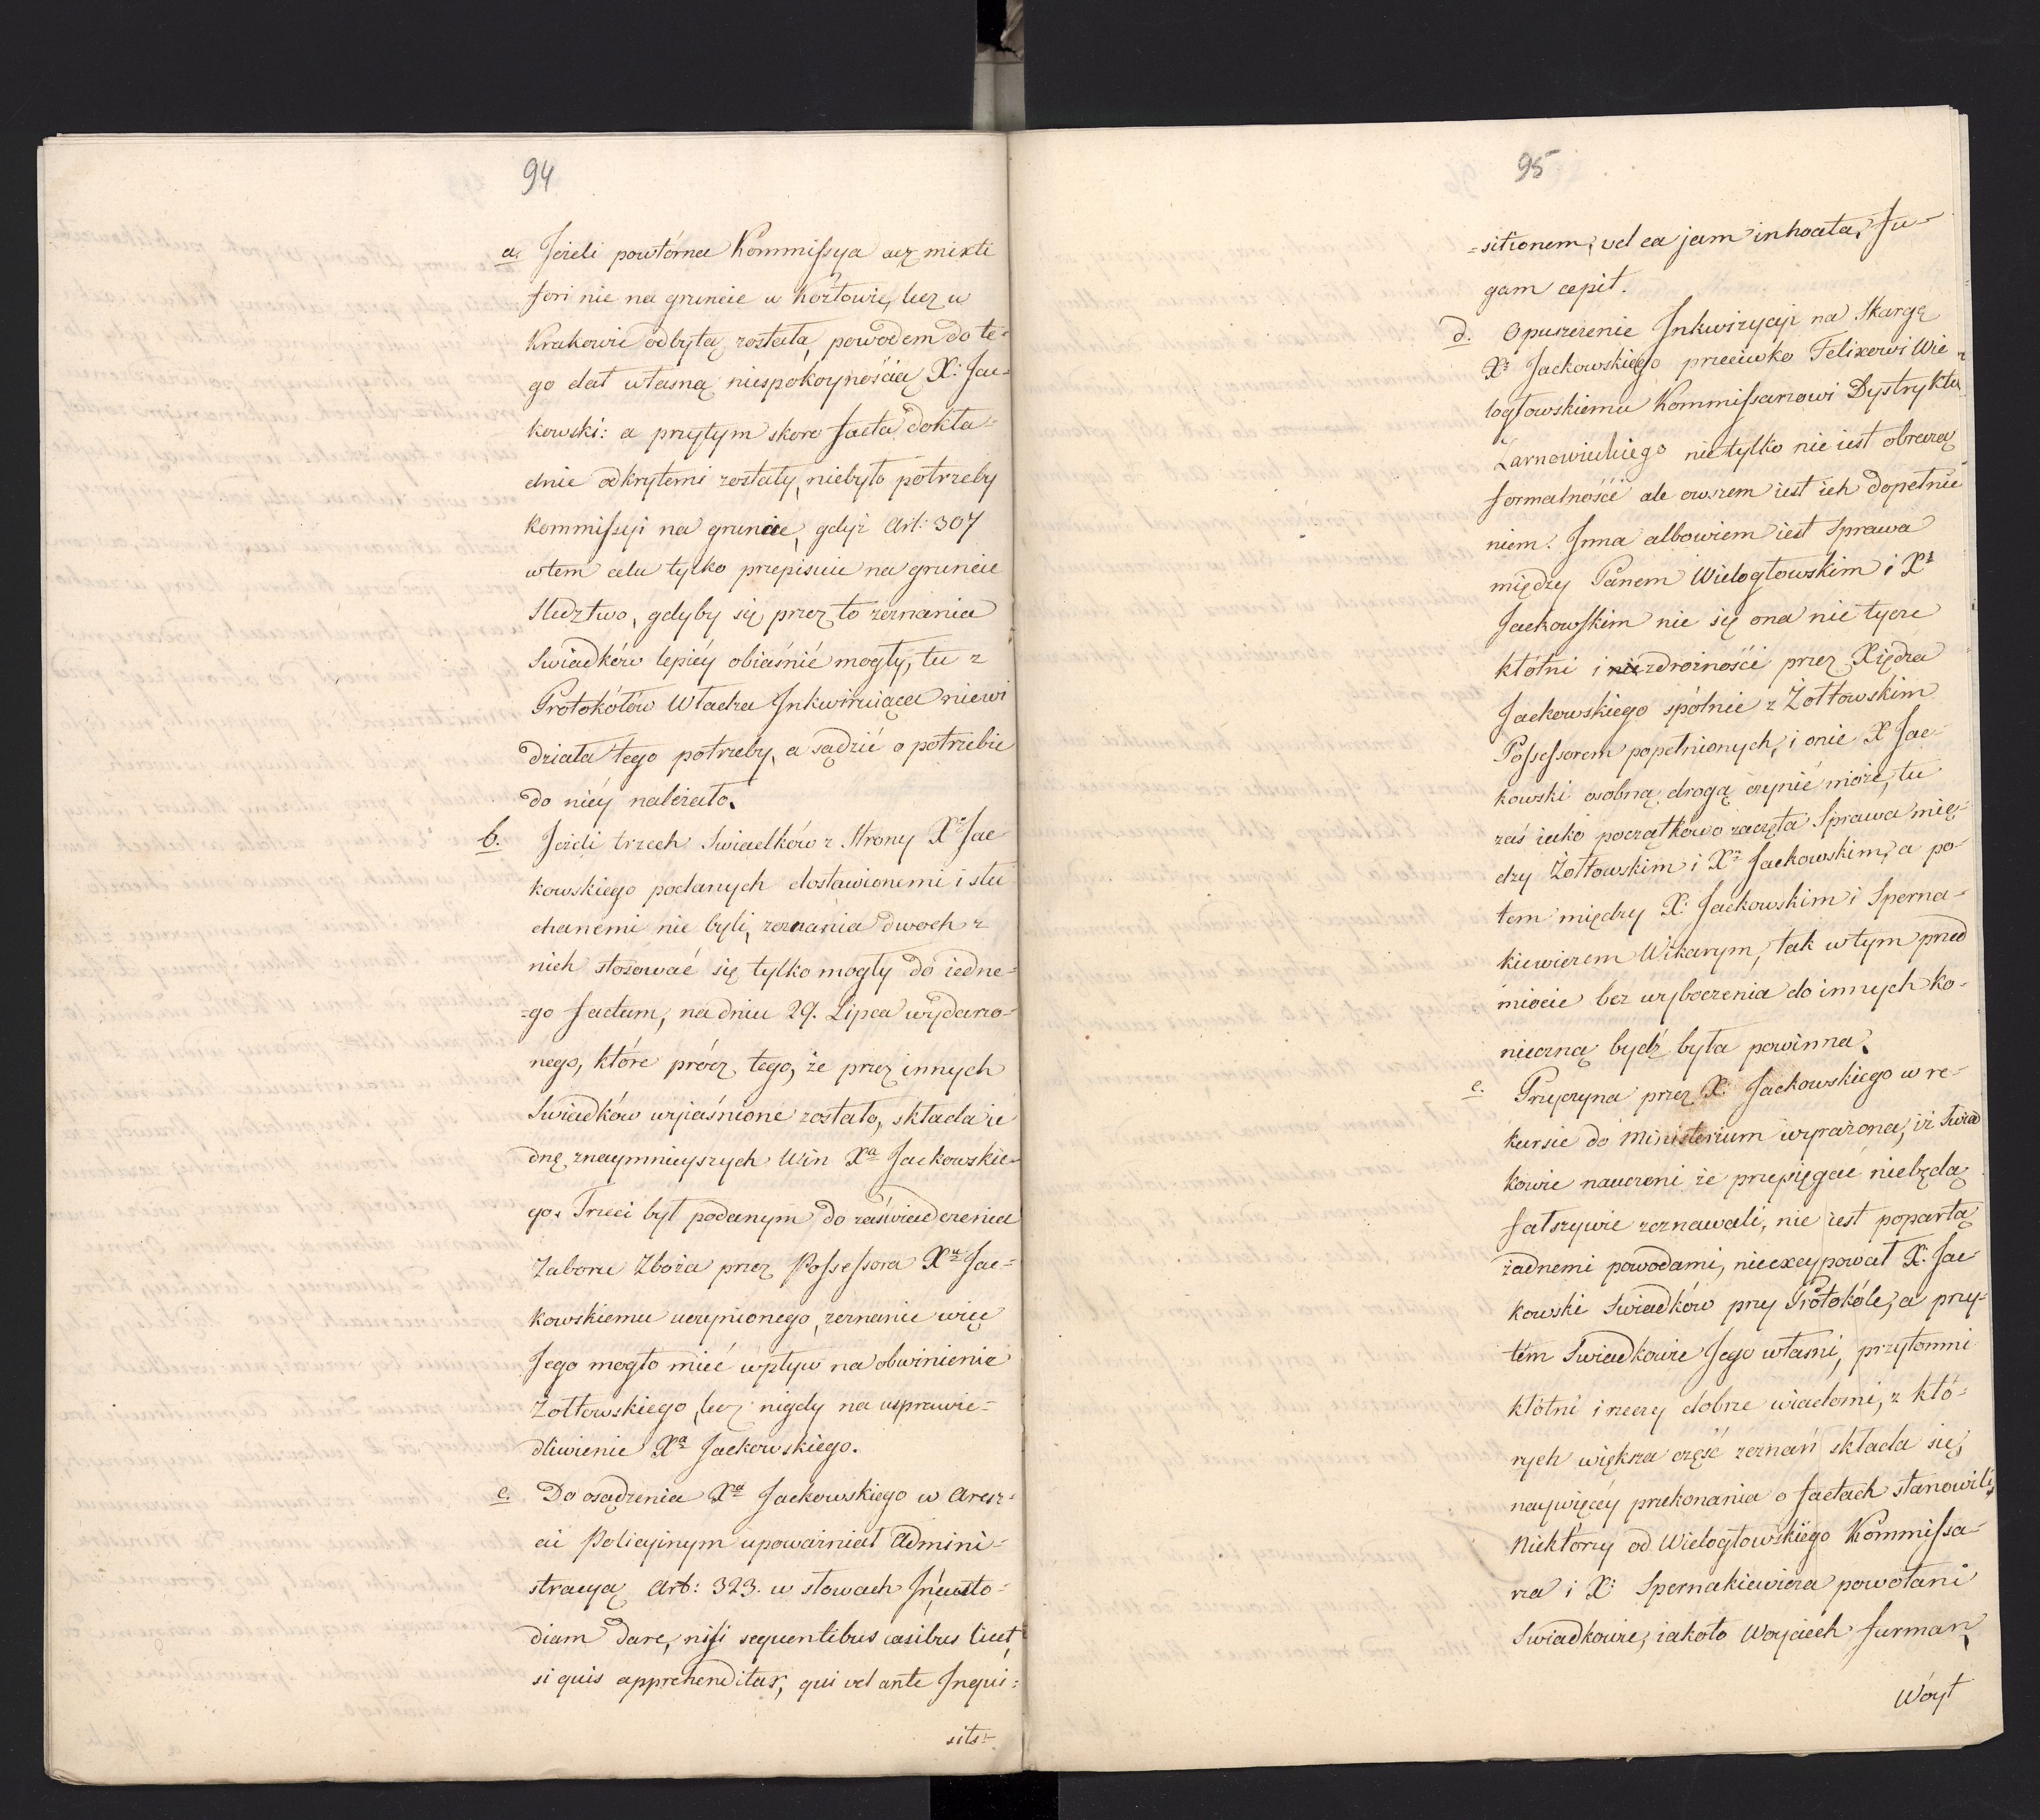 94
a. Jeżeli powtórna Kommissya acz mixti
fori nie na gruncie w Kozłowie, lecz w
Krakowie odbytą została, powodem do te-
go dał własną niespokoynością X: Jac-
kowski: a przytym skoro facta dokła-
dnie odkrytemi zostały, niebyło potrzeby
Kommissyi na gruncie, gdyż Art: 307
wtem celu tylko przepisuie na gruncie
Sledztwo, gdyby się przez to zeznania
Swiadków lepiéy obiaśnić mogły, tu z
Protokółów Władza Inkwiruiąca niewi
działa tego potrzeby, a sądzić o potrzebie
do niéy należało.
b. Jeżeli trzech Swiadków z Strony Xa Jac
kowskiego podanych dostawionemi i słu
chanemi nie byli, zeznania dwoch z
nich stosować się tylko mogły do iedne-
-go factum, na dniu 29. Lipca wydarzo-
nego, które prócz tego, że przez innych
Swiadków wyiaśnione zostało, składa ie
dnę znaymnieyszych Win Xa Jackowskie-
go. Trzeci był podanym do zaświadczenia
Zaboru Zboża przez Possessora Xu Jac-
kowskiemu uczynionego, zeznanie więc
Jego mogło mieć wpływ na obwinienie
Żółtowskiego, lecz nigdy na usprawie-
dliwienie Xa Jackowskiego.
c. Do osądzenia Xa Jackowskiego w Aresz-
cie Policyinym upoważniał Admini-
stracyą Art: 323. w słowach In custo-
diam dare, nisi sequentibus casibus licet,
si quis apprehenditur, qui vel ante Inqui-
sits-
95
-sitionem, vel ea jam inhoata, Fu-
gam cepit.
d. Opuszczenie Inkwizycyi na Skargę
Xa Jackowskiego przeciwko Felixowi Wie
logłowskiemu Kommissarzowi Dystryktu
Żarnowieckiego nietylko nie iest obrazą
formalności ale owszem iest ich dopełnie
niem. Inna albowiem iest Sprawa
między Panem Wielogłowskim i Xm
Jackowskim nie się ona nie tycze
kłótni i niezdrożności przez Xiędza
Jackowskiego spólnie z Żółtowskim
Possessorem popełnionych, i onie X Jac-
kowski osobną drogą czynić może, tu
zaś iako początkowo zaczęta Sprawa mię-
dzy Żółtowskim i Xm Jackowskim, a po-
tem między X: Jackowskim i Sperna-
kiewiczem Wikarym, tak w tym przed
miocie bez wyboczenia do innych ko-
nieczną bydź była powinna.
e. Przyczyna przez X: Jackowskiego w re-
kursie do Ministerium wyrażona, iż Swiad
kowie nauczeni że przysięgać niebędą
fałszywie zeznawali, nie iest popartą
żadnemi powodami, nieexcypował X. Jac-
kowski Swiadków przy Protokóle, a przy-
tém Swiadkowie Jego własni, przytomni
kłótni i rzeczy dobrze wiadomi, z któ-
rych większa część zeznań składa się,
naywięcéy przekonania o factach stanowili,
Niektórzy od Wielogłowskiego Kommissa-
rza i X: Spernakiewicza powołani
Swiadkowie, iakoto Woyciech Furman,
Wóyt